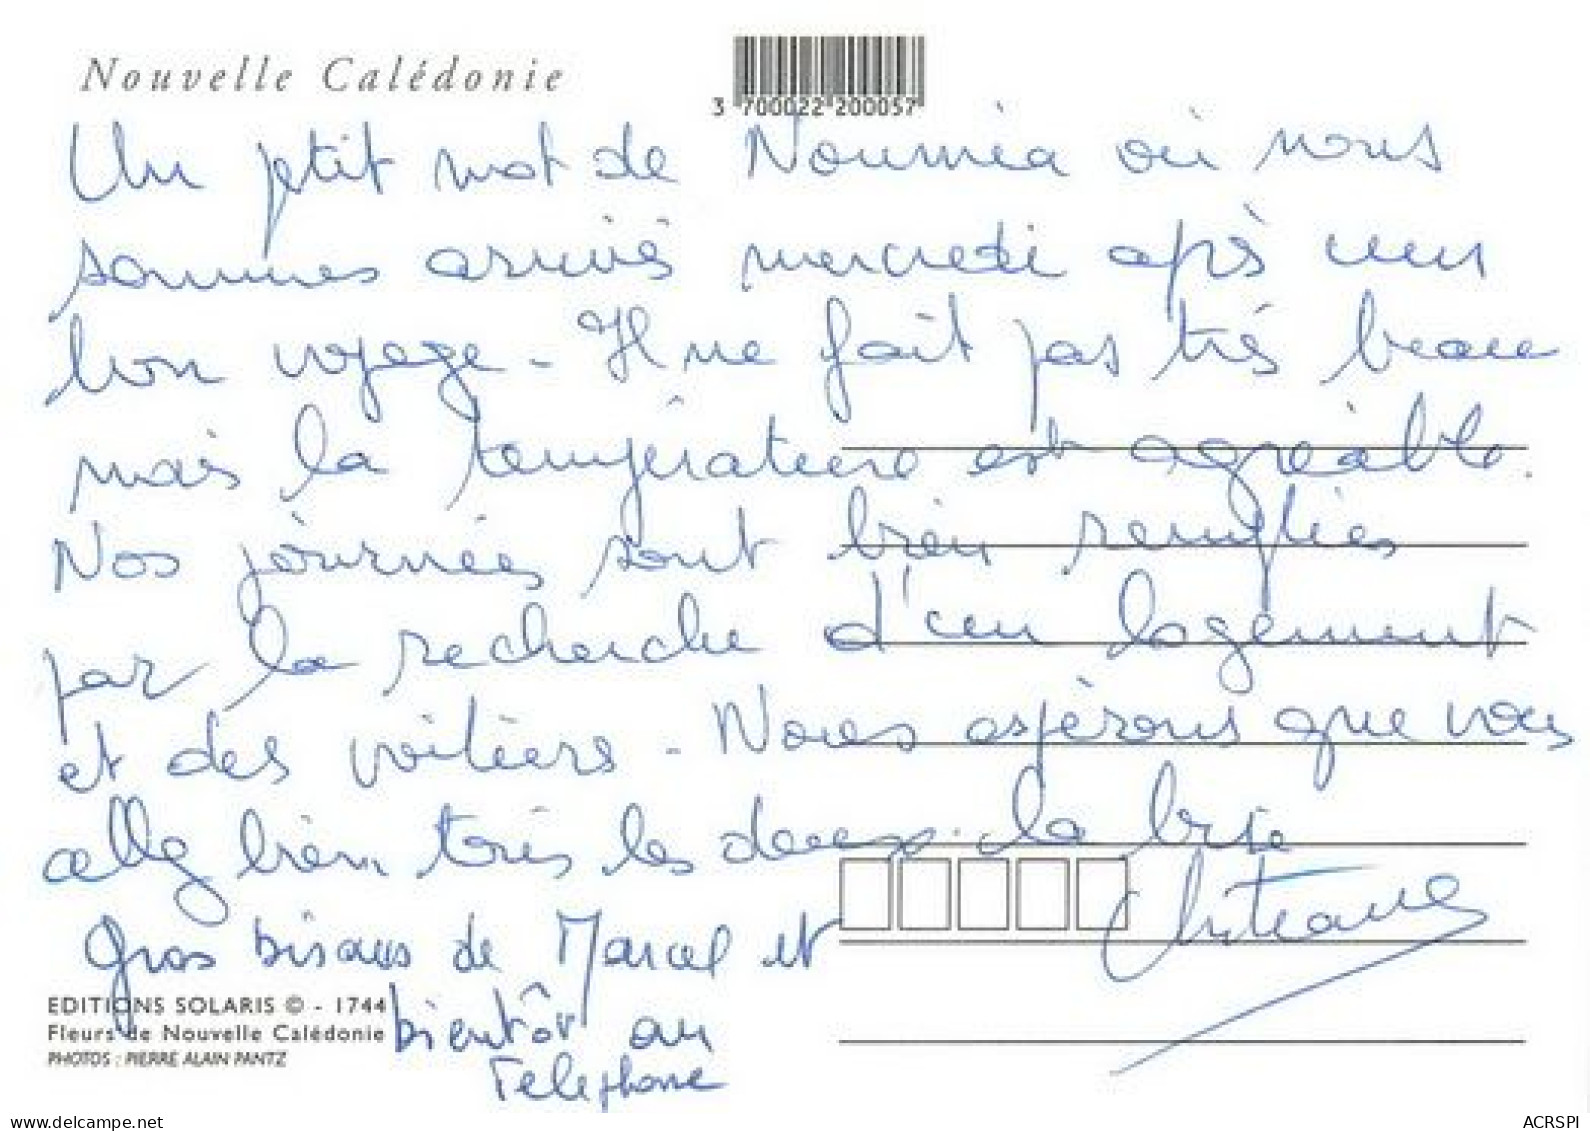 Nouvelle Calédonie
3 700022 200057
Un ptit mot de Nouméa où nous
sommes arrivés mercredi après un
bon voyage - Il ne fait pas très beau
mais la température est agréable.
Nos journées sont bien remplies
par la recherche d'un logement
et des voiliers - Nous espérons que vous
allez bien tous les deux. la bise
Gros bisous de Marcel et
bientôt au
Telephone
EDITIONS SOLARIS © - 1744
Fleurs de Nouvelle Calédonie
PHOTOS : PIERRE ALAIN PANTZ
www.delcampe.net
ACRSPI